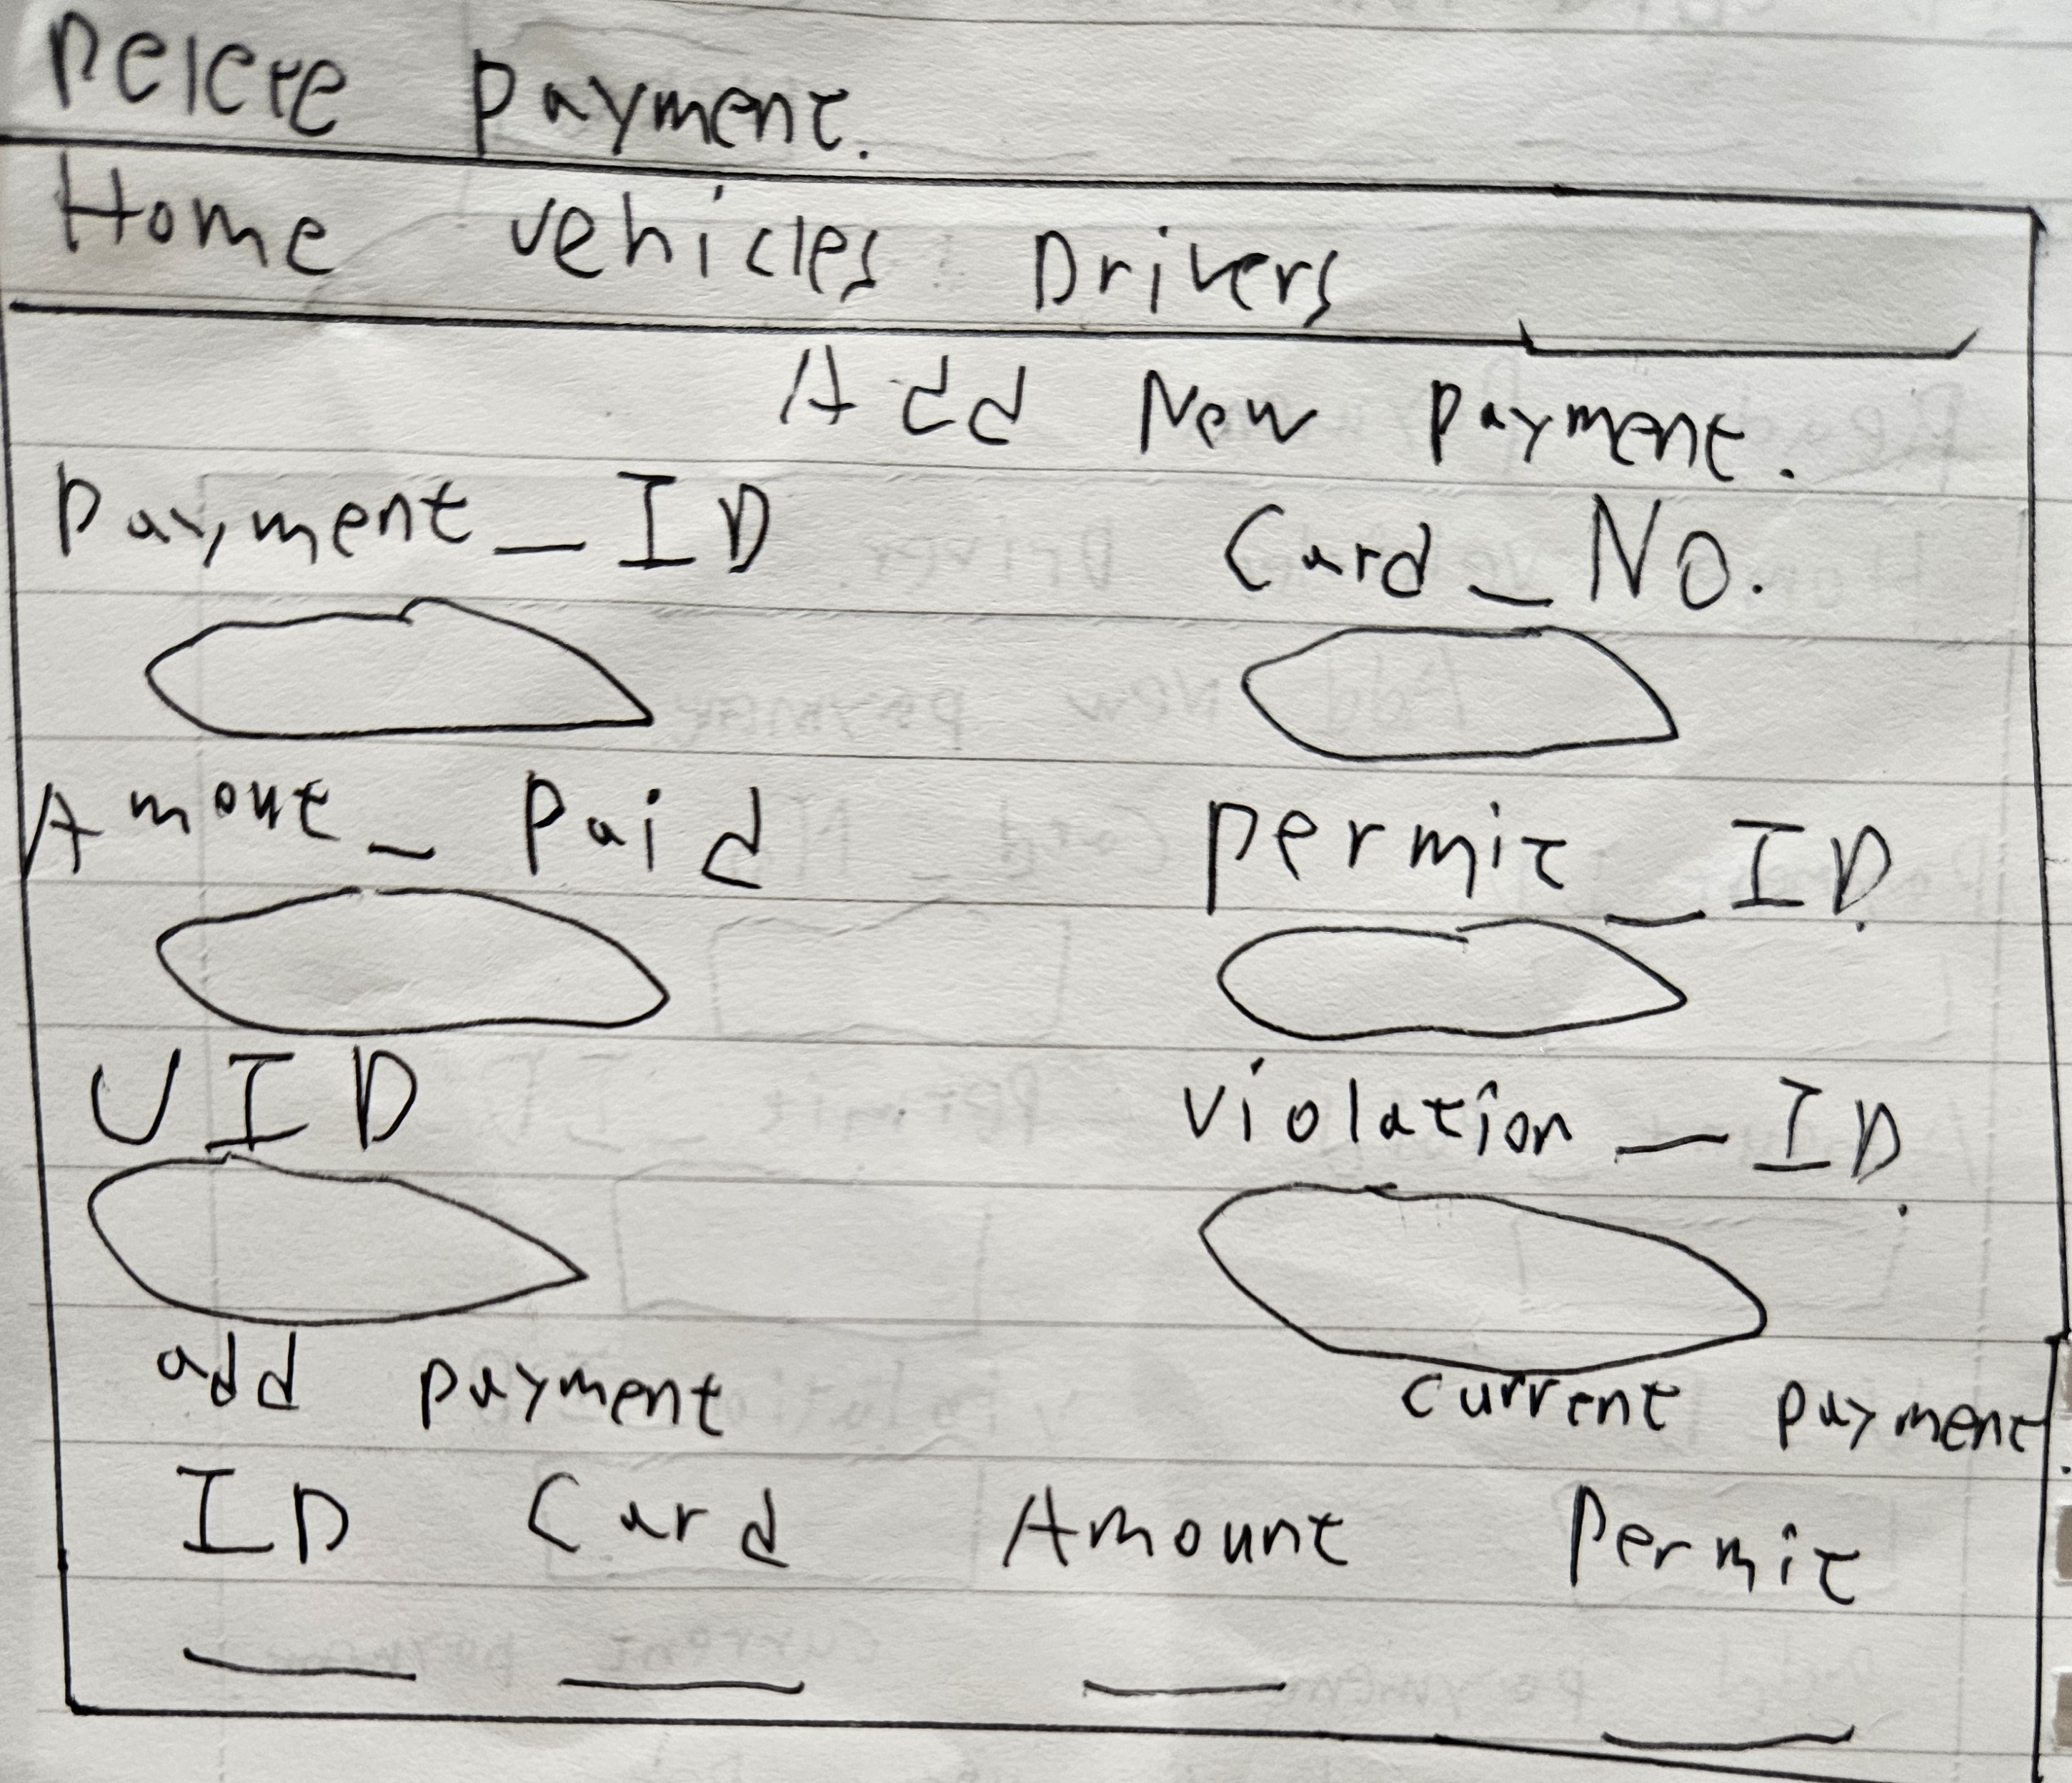 Delete payment.
Home vehicles Drivers
Add New payment.
payment_ID Card_No.
Amout_Paid permit_ID.
UID violation_ID.
add payment current payment.
ID Card Amount Permit